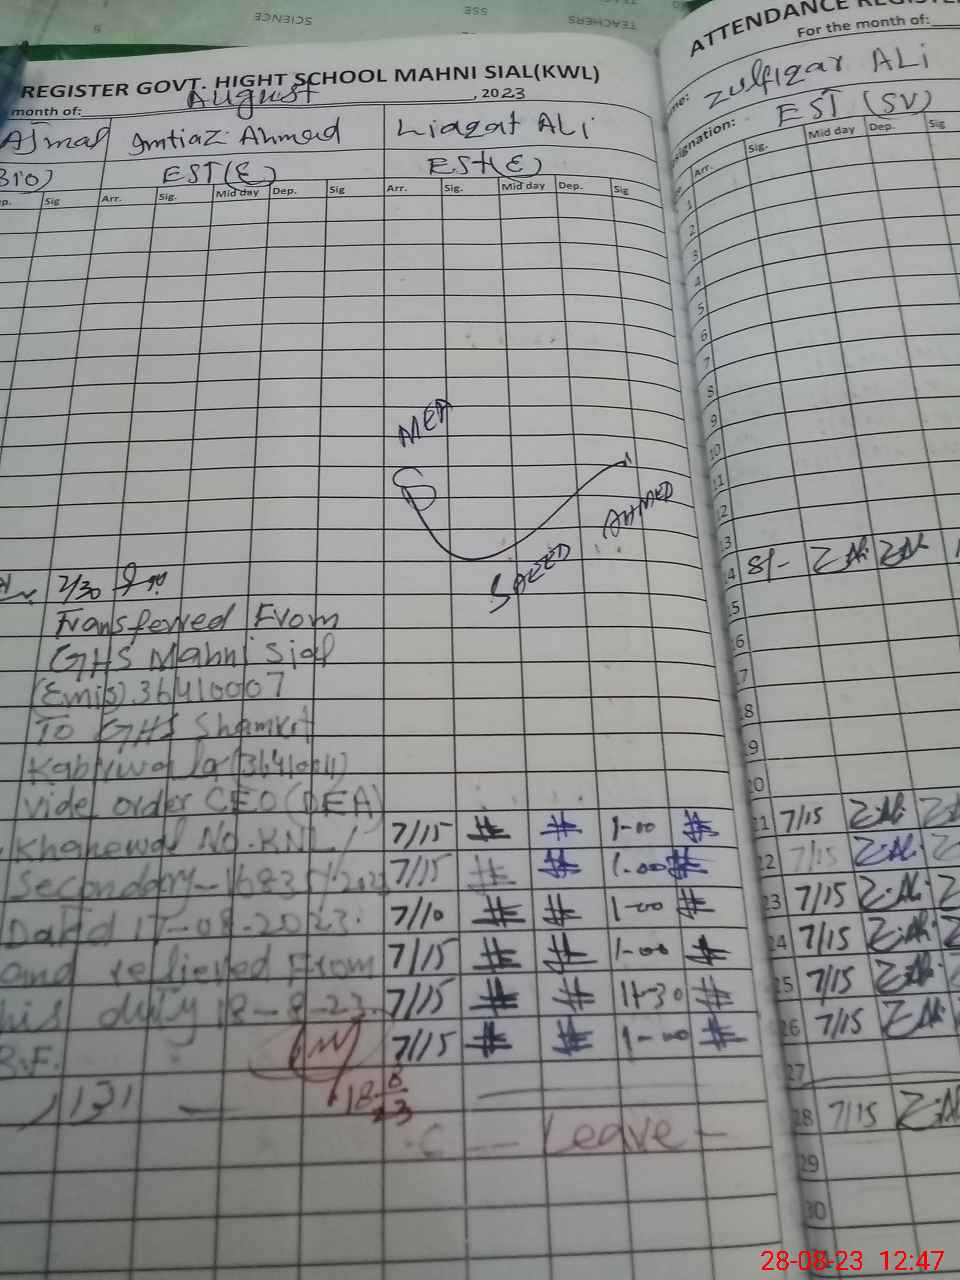 SCIENCE
SSE
TEACHERS
REGISTER GOVT. HIGHT SCHOOL MAHNI SIAL(KWL)
month of: August , 2023
Ajmal Imtiaz Ahmed Liaqat ALi
EST(E) EST(E)
Sig Arr. Sig. Mid day Dep. Sig Arr. Sig. Mid day Dep. Sig
MEA
SAEED AHMED
7/30
Transferred From
GHS Mahni Sial
(Emis) 36410007
To GHS Shamkot
Kabirwala (36410011)
vide order CEO (DEA)
Khanewal No. KNL/
Secondary-
Dated 17-08-2023.
and relieved From
his duty 18-8-23.
7/15 1-00
7/15 1.00
7/10 1-00
7/15 1-00
7/15 11-30
7/15 1-00
18-8-23
C Leave
ATTENDANCE REGISTE
For the month of:
Zulfiqar ALi
signation: EST (SV)
Arr. Sig. Mid day Dep. Sig
1
2
3
4
5
6
7
8
9
10
11
12
13
14 8/- Z.Ali Z.Ali
15
16
17
18
19
20
21 7/15 Z.Ali
22 7/15 Z.Ali
23 7/15 Z.Ali
24 7/15 Z.Ali
25 7/15 Z.Ali
26 7/15 Z.Ali
27
28 7/15 Z.Ali
29
30
28-08-23 12:47